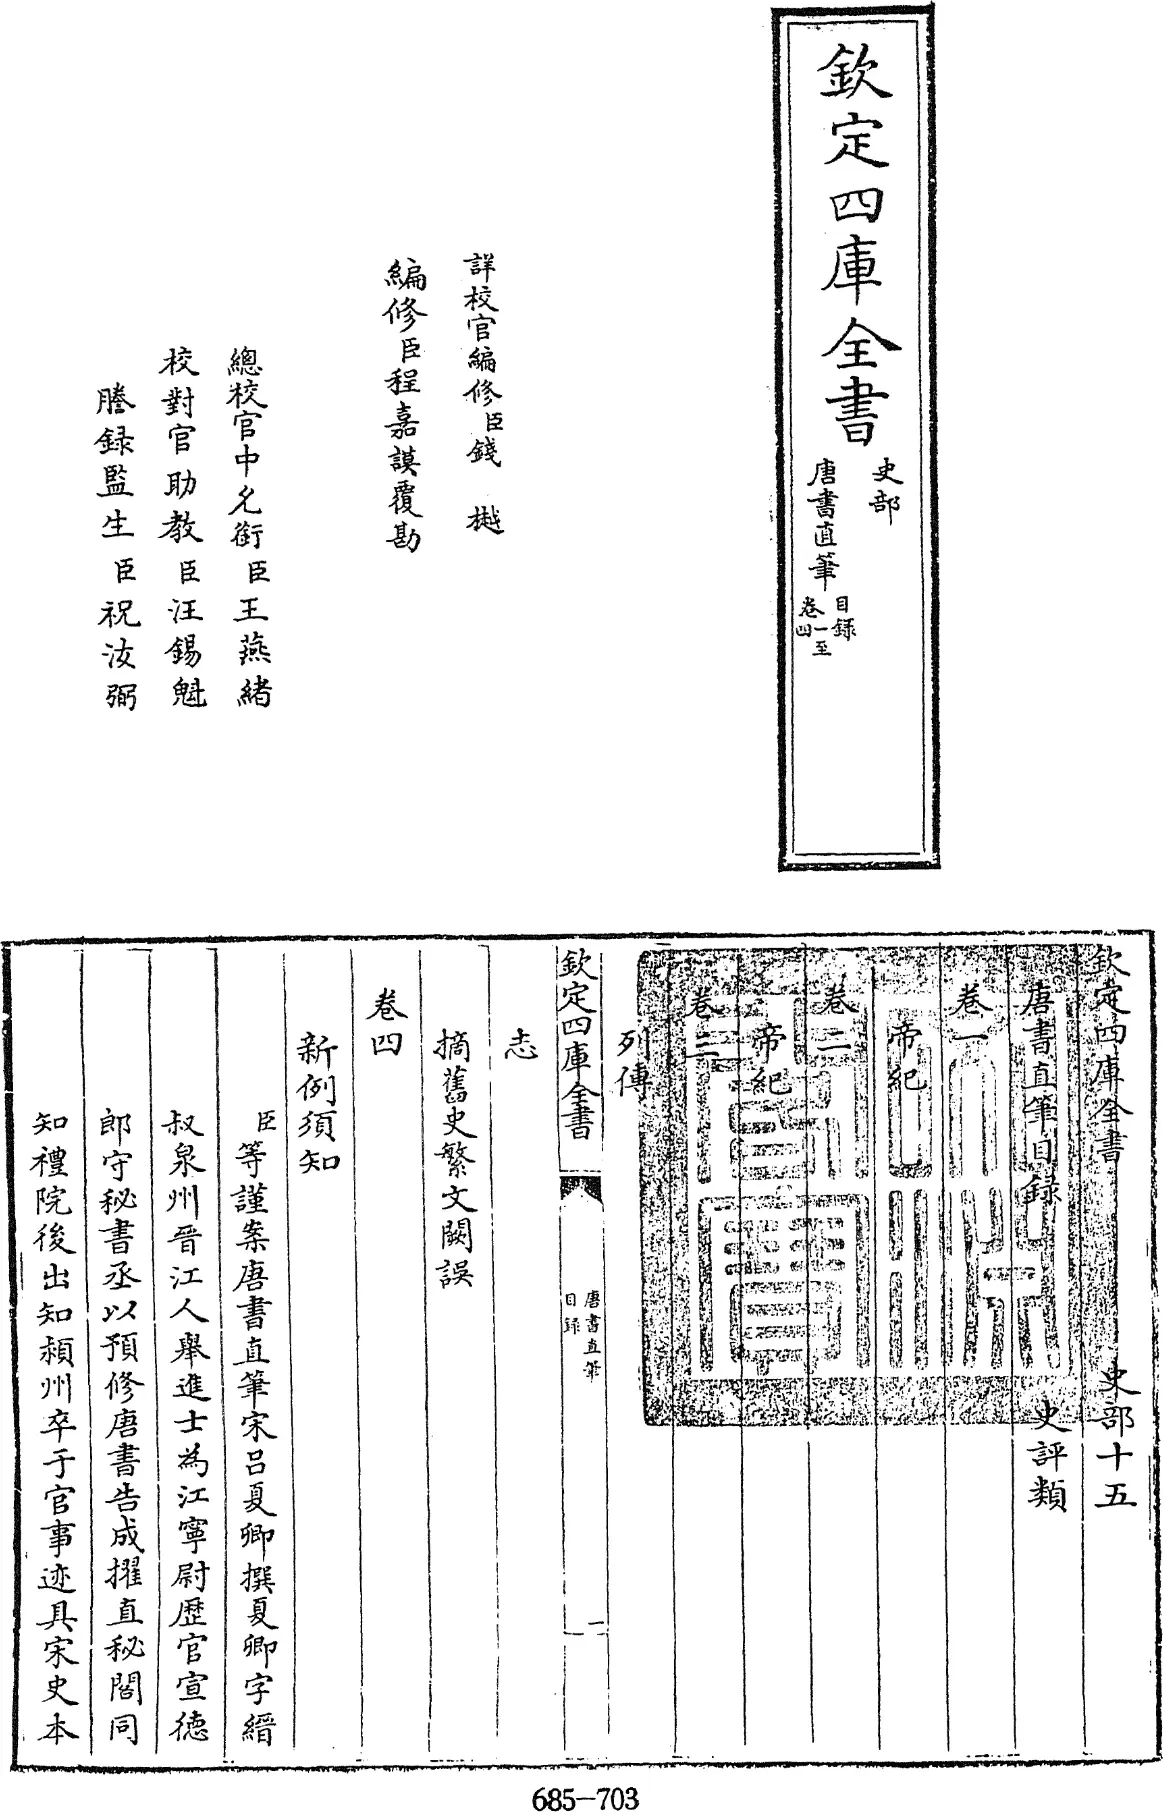 欽定四庫全書
史部
唐書直筆
目録
卷一至
四
詳校官編修臣錢樾
編修臣程嘉謨覆勘
總校官中允銜臣王燕緒
校對官助教臣汪錫魁
謄録監生臣祝汝弼
欽定四庫全書 史部十五
唐書直筆目録 史評類
卷一
帝紀
卷二
帝紀
卷三
列傳
欽定四庫全書
唐書直筆
目録
一
志
摘舊史繁文闕誤
卷四
新例須知
臣等謹案唐書直筆宋呂夏卿撰夏卿字縉
叔泉州晉江人舉進士為江寧尉歴官宣德
郎守秘書丞以預修唐書告成擢直秘閣同
知禮院後出知潁州卒于官事迹具宋史本
685-703